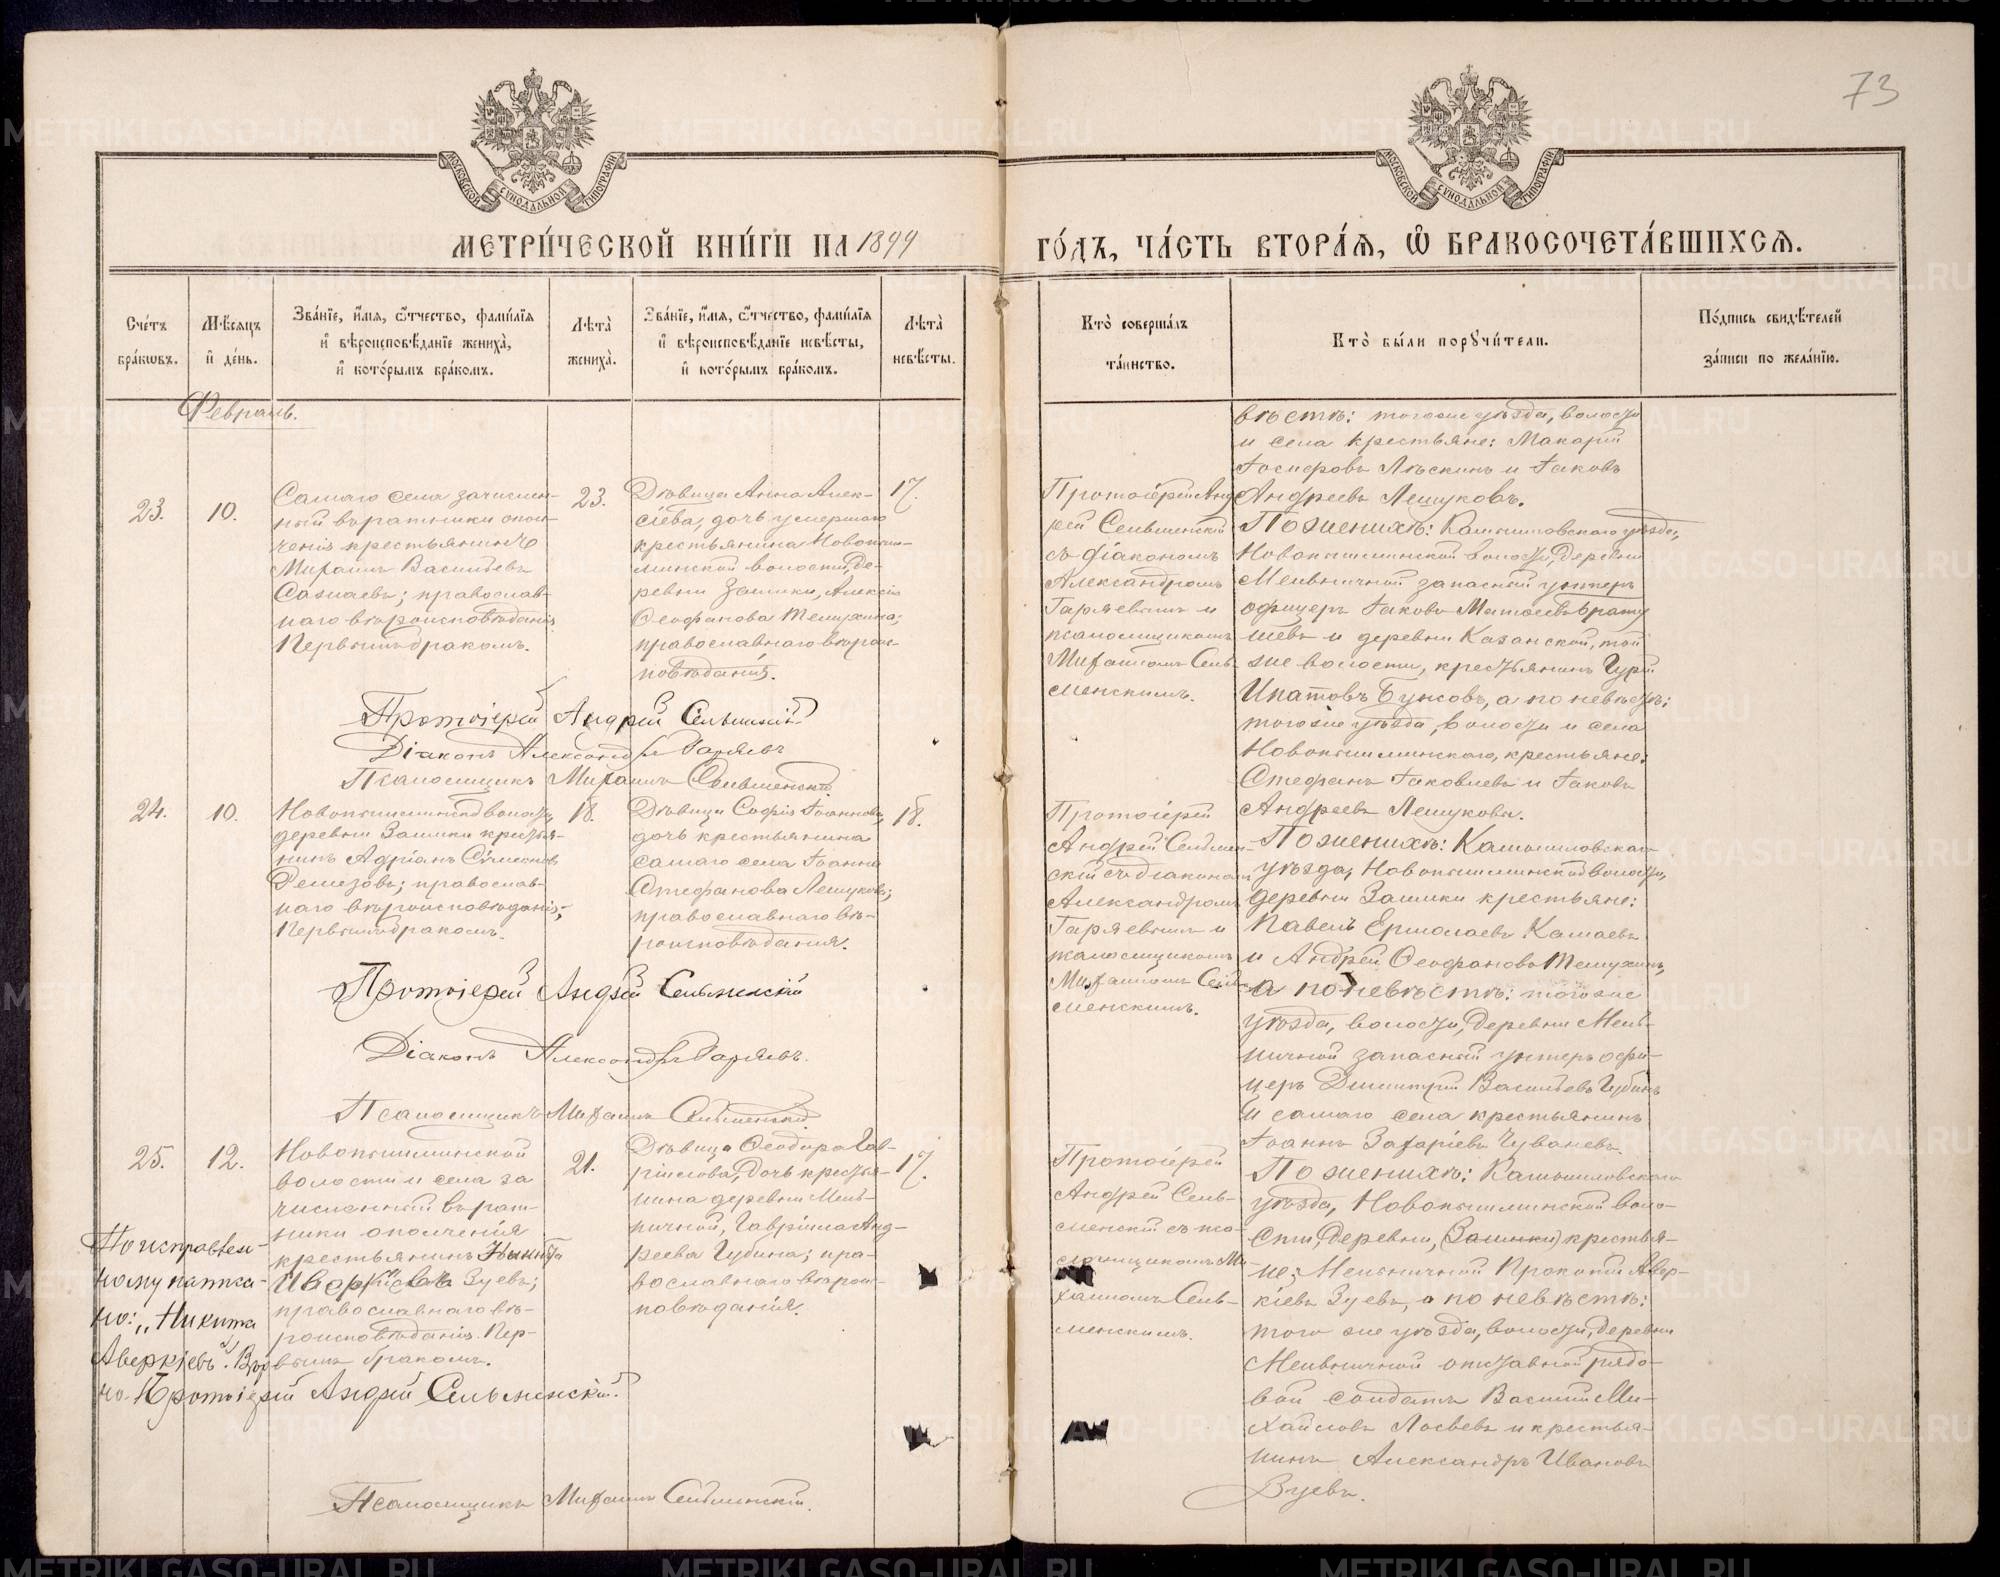 73
МЕТРИЧЕСКОЙ КНИГИ НА 1899
ГОДЪ, ЧАСТЬ ВТОРАЯ, Ѡ БРАКОСОЧЕТАВШИХСЯ.
МОСКОВСКОЙ СѴНОДАЛЬНОЙ ТИПОГРАФІИ
МОСКОВСКОЙ СѴНОДАЛЬНОЙ ТИПОГРАФІИ
Счетъ браковъ.
Мѣсяцъ и день.
Званіе, имя, отчество, фамилія
и вѣроисповѣданіе жениха,
и которымъ бракомъ.
Лѣта жениха.
Званіе, имя, отчество, фамилія
и вѣроисповѣданіе невѣсты,
и которымъ бракомъ.
Лѣта невѣсты.
Кто совершалъ
таинство.
Кто были поручители.
Подпись свидѣтелей
записи по желанію.
Февраль.
23.
10.
Самаго села зачислен-
ный въ ратники опол-
ченія крестьянинъ
Михаилъ Васильевъ
православ-
наго вѣроисповѣданія,
Первымъ бракомъ.
23.
Дѣвица Анна Алек-
сіева, дочь умершаго
крестьянина Новопыш-
минской волости, де-
ревни Заимки, Алексія
Ѳеофанова Темухина;
православнаго вѣроис-
повѣданія.
17.
Протоіерей Анд
рей Сельменскій
съ діакономъ
Александромъ
Гаряевымъ и
псаломщикомъ
Михаиломъ Сель-
менскимъ.
вѣстѣ: тогоже уѣзда, волости
и села крестьяне: Макарій
Іосифовъ и Іаковъ
Андреевъ Лешуковъ.
По женихѣ: Камышловскаго уѣзда,
Новопышминской волости, деревни
Мельничной запасный унтеръ
офицеръ Іаковъ
и деревни Казанской, той
же волости, крестьянинъ Гурій
Ипатовъ а по невѣстѣ:
тогоже уѣзда, волости и села
Новопышминскаго, крестьяне:
Стефанъ Іаковлевъ и Іаковъ
Андреевъ Лешуковы.
Протоіерей Андрей Сельменскій
Діаконъ Александръ Гаряевъ
Псаломщикъ Михаилъ Сельменскій
24.
10.
Новопышминской волости,
деревни Заимки крестья-
нинъ Адріанъ Симеоновъ
православ-
наго вѣроисповѣданія;
Первымъ бракомъ.
18.
Дѣвица Софія Іоаннова,
дочь крестьянина
самаго села Іоанна
Стефанова Лешукова;
православнаго вѣ-
роисповѣдания.
18.
Протоіерей
Андрей Сельмен-
скій съ діакономъ
Александромъ
Гаряевымъ и
псаломщикомъ
Михаиломъ Сель-
менскимъ.
По женихѣ: Камышловскаго
уѣзда, Новопышминской волости,
деревни Заимки крестьяне:
Павелъ Ермолаевъ
и Андрей Ѳеофановъ Темухинъ,
а по невѣстѣ: тогоже
уѣзда, волости, деревни Мель-
ничной запасный унтеръ офи-
церъ Димитрій Васильевъ Губинъ
и самаго села крестьянинъ
Іоаннъ Захаріевъ Чувашевъ.
Протоіерей Андрей Сельменскій
Діаконъ Александръ Гаряевъ.
Псаломщикъ Михаилъ Сельменскій
25.
12.
Новопышминской
волости и села за
численный въ рат-
ники ополченія
крестьянинъ Никита
Аверкіевъ Зуевъ;
православнаго вѣ-
роисповѣданія. Пер-
вымъ бракомъ.
21.
Дѣвица Ѳеодора Гав-
ріилова, дочь крестья-
нина деревни Мель-
ничной, Гавріила Анд-
реева Губина; пра-
вославнаго вѣроис-
повѣданія.
17.
Протоіерей
Андрей Сель-
менскій съ пса-
ломщикомъ Ми-
хаиломъ Сель-
менскимъ.
По женихѣ: Камышловскаго
уѣзда, Новопышминской воло-
сти, деревни, (Заимки) крестья-
не; Мельничной Прокопій Авер-
кіевъ Зуевъ, а по невѣстѣ:
того же уѣзда, волости, деревни
Мельничной отставной рядо-
вой солдатъ Василій Ми-
хайловъ и крестья-
нинъ Александръ Ивановъ
Зуевъ.
По исправлен-
ному написа-
но: „Никита
Аверкіевъ". Вѣр
но. Протоіерей Андрей Сельменскій.
Псаломщикъ Михаилъ Сельменскій.
METRIKI.GASO-URAL.RU